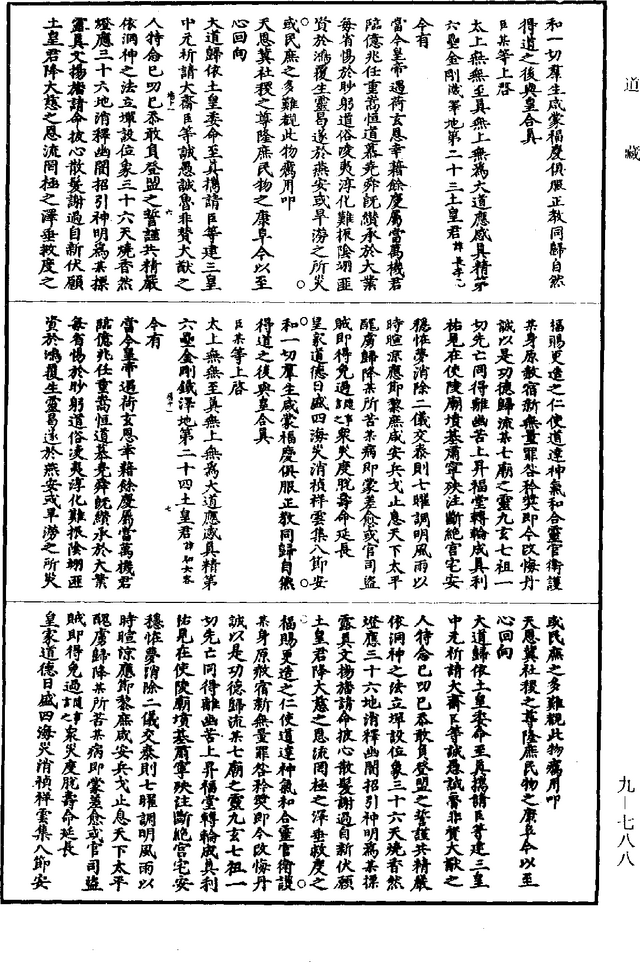 道藏
和一切羣生咸蒙福慶俱服正教同歸自然
得道之後與皇合真
臣某等上啓
太上無無至真無上無爲大道應感真精第
六壘金剛鐵澤地第二十三土皇君
今有
當今皇帝過荷玄恩幸藉餘慶屬當萬機君
臨億兆任重嵩恒道慕堯舜旣纘承於大業
每省惕於眇躬道俗凌夷淳化難振陰翊匪
資於鴻覆生靈曷遂於燕安或旱澇之所災
或民庶之多難覩此物癘用叩
天恩冀社稷之尊隆庶民物之康阜今以至
心回向
大道歸依土皇委命至真撝請臣等建三皇
中元祈請大齋臣等誠愚誠魯非贊大猷之
人特念已叨已忝敢負登盟之誓謹共精嚴
依洞神之法立壇設位象三十六天燒香然
燈應三十六地清釋幽闇招引神明爲某標
靈具文揚旛請命披心散髮謝過自新伏願
土皇君降大慈之恩流罔極之澤垂救度之
福賜更造之仁使道達神氣和合靈官衛護
某身原赦宿新無量罪咎矜奬即令改悔丹
誠以是功德歸流某七廟之靈九玄七祖一
切先亡同得離幽苦上昇福堂轉輪成真利
祐見在使陵廟墳墓肅寧殃注斷絶宫宅安
穩怪夢消除二儀交泰則七曜調明風雨以
時暄涼應節黎庶咸安兵戈止息天下太平
醜虜歸降某所苦某病即蒙差愈或官司盜
賊即得免過衆災度脱壽命延長
皇家道德日盛四海災消禎祥雲集八節安
和一切羣生咸蒙福慶俱服正教同歸自然
得道之後與皇合真
臣某等上啓
太上無無至真無上無爲大道應感真精第
六壘金剛鐵澤地第二十四土皇君
今有
當今皇帝過荷玄恩幸藉餘慶屬當萬機君
臨億兆任重嵩恒道慕堯舜旣纘承於大業
每省惕於眇躬道俗凌夷淳化難振陰翊匪
資於鴻覆生靈曷遂於燕安或旱澇之所災
或民庶之多難覩此物癘用叩
天恩冀社稷之尊隆庶民物之康阜今以至
心回向
大道歸依土皇委命至真撝請臣等建三皇
中元祈請大齋臣等誠愚誠魯非贊大猷之
人特念已叨已忝敢負登盟之誓謹共精嚴
依洞神之法立壇設位象三十六天燒香然
燈應三十六地清釋幽闇招引神明爲某標
露具文揚旛請命披心散髮謝過自新伏願
土皇君降大慈之恩流罔極之澤垂救度之
福賜更造之仁使道達神氣和合靈官衛護
某身原赦宿新無量罪咎矜奬即令改悔丹
誠以是功德歸流某七廟之靈九玄七祖一
切先亡同得離幽苦上昇福堂轉輪成真利
祐見在使陵廟墳墓肅寧殃注斷絶宫宅安
穩怪夢消除二儀交泰則七曜調明風雨以
時暄涼應節黎庶咸安兵戈止息天下太平
醜虜歸降某所苦某病即蒙差愈或官司盜
賊即得免過衆災度脱壽命延長
皇家道德日盛四海災消禎祥雲集八節安
九－七八八